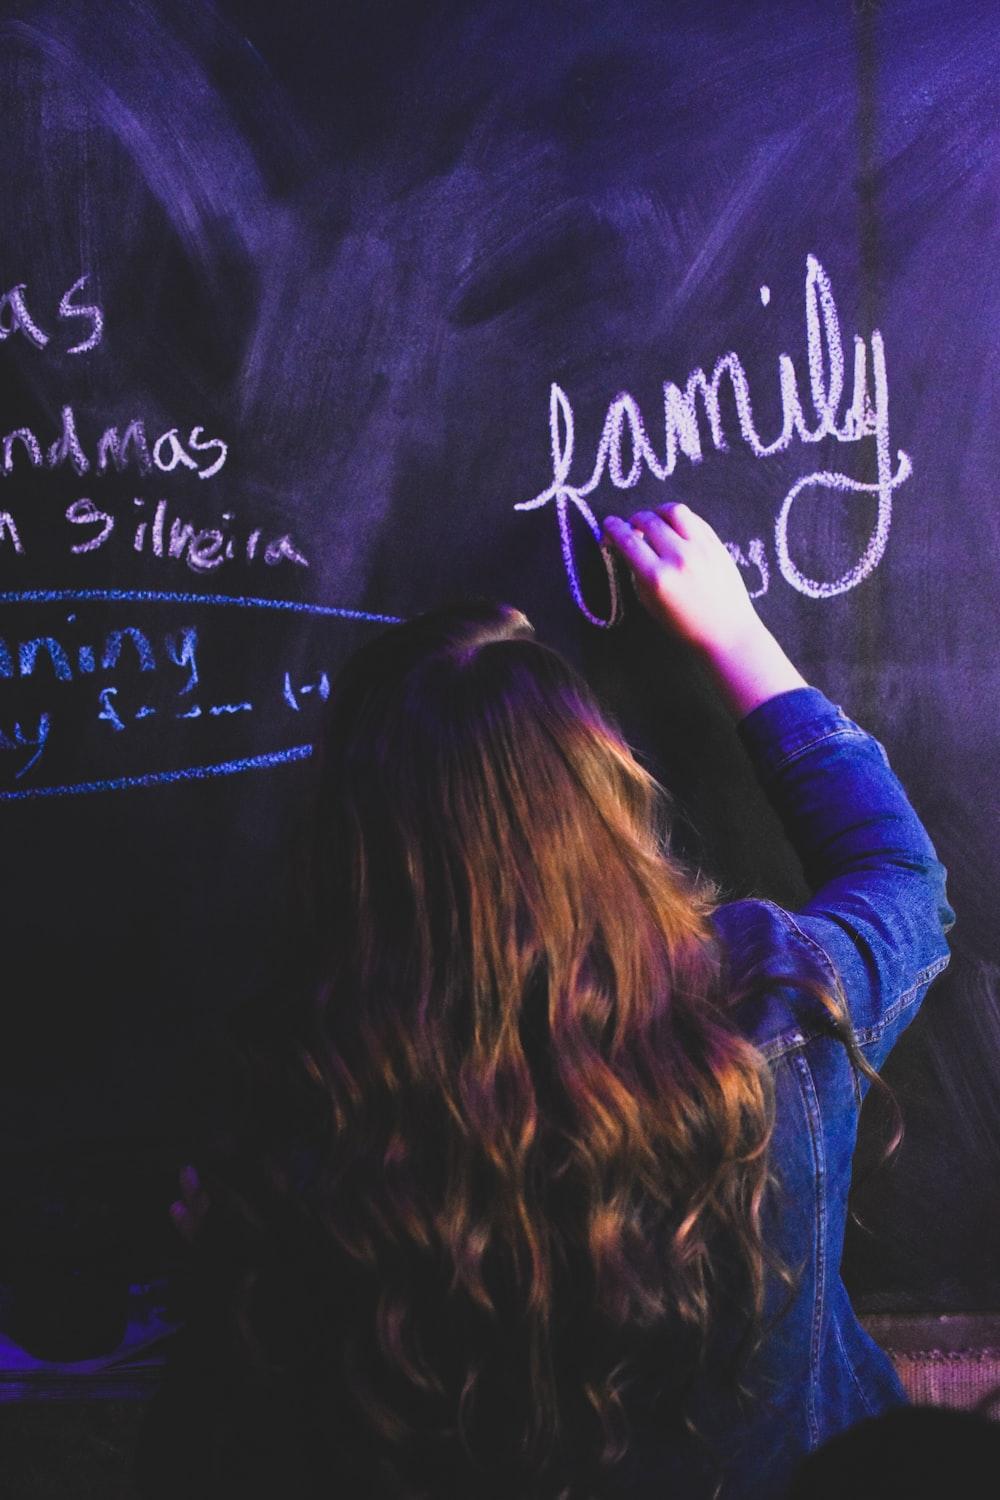 as
ndmas
n Silveira
ning
ay from H
family